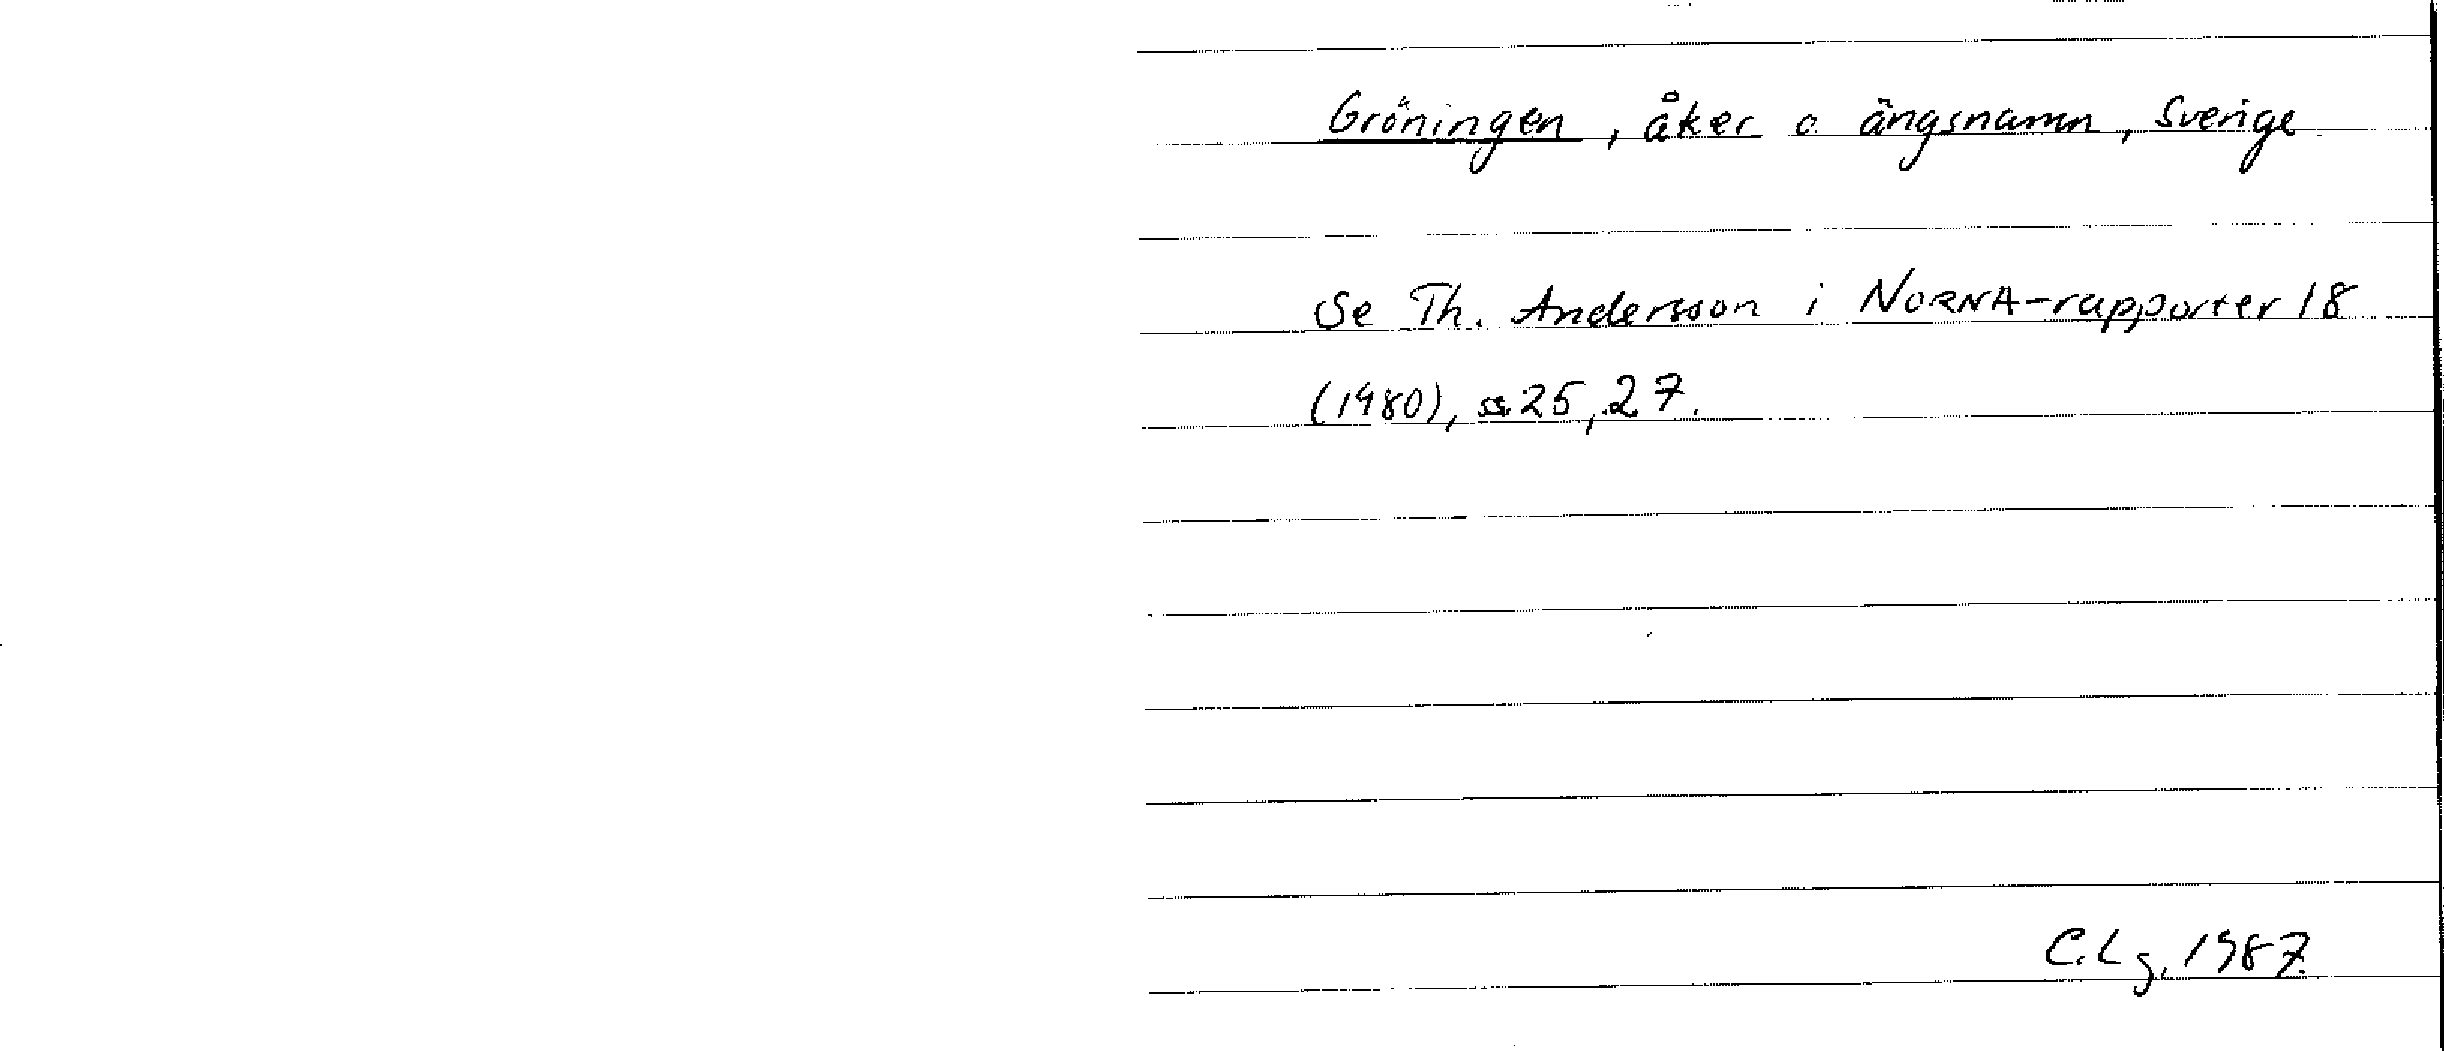 Gröningen, åker o ängsnamn, Sverige
Se Th. Andersson i NORNA-rapporter 18
(1980), ss. 25, 27.
C. Lg, 1987